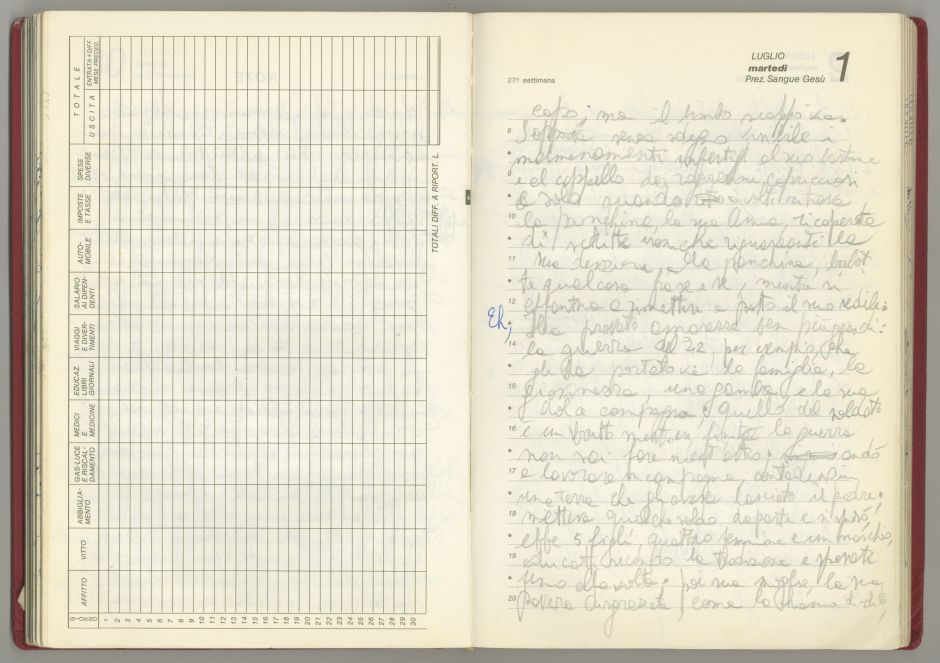 TOTALE
ENTRATA+DIFF.
MESE PRECED.
USCITA
SPESE
DIVERSE
IMPOSTE
E TASSE
AUTO-
MOBILE
SALARIO
AI DIPEN-
DENTI
VIAGGI
E DIVER-
TIMENTI
EDUCAZ.
LIBRI
GIORNALI
MEDICI
E
MEDICINE
GAS-LUCE
E RISCAL-
DAMENTO
ABBIGLIA-
MENTO
VITTO
AFFITTO
1 2 3 4 5 6 7 8 9 10 11 12 13 14 15 16 17 18 19 20 21 22 23 24 25 26 27 28 29 30
TOTALI DIFF. A RIPORT. L.
27ª settimana
LUGLIO
martedì
Prez. Sangue Gesù
1
capo; ma il tempo scappò via.
8
senza
al suo bastone
9
e al cappello dei ragazzini capricciosi
E solo quando a volte ritrova
10
la panchina, la sua Anna, ricoperta
di scritte ironiche riguardanti la
11
sua, alla panchina,
te qualcosa pare e se, mentre si
12
affanna a rimettere a posto il suo sedile:
Eh,
Ha provato amarezze ben più grandi:
14
la guerra del 42, per esempio, che
gli ha portato via la famiglia, la
15
giovinezza, una gamba, e la sua
sola compagna; quello del soldato
16
è un brutto mestiere, finita la guerra
non sai fare nient'altro: andò
17
a lavorare in campagna,
una terra che gli aveva lasciato il padre;
18
metteva qualche soldo da parte e si sposò,
ebbe 5 figli, quattro femmine e un maschio,
19
educati secondo la tradizione e sposati
uno alla volta; poi sua moglie, la sua
20
povera disgraziata, come la